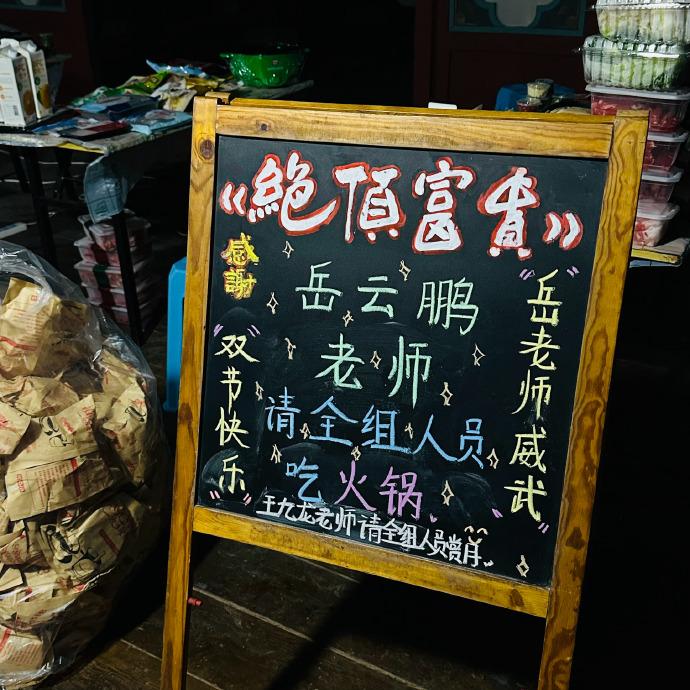 《絶頂富貴》
感謝
岳云鹏
老师
请全组人员
吃火锅
"双节快乐"
"岳老师威武"
王九龙老师请全组人员赏月